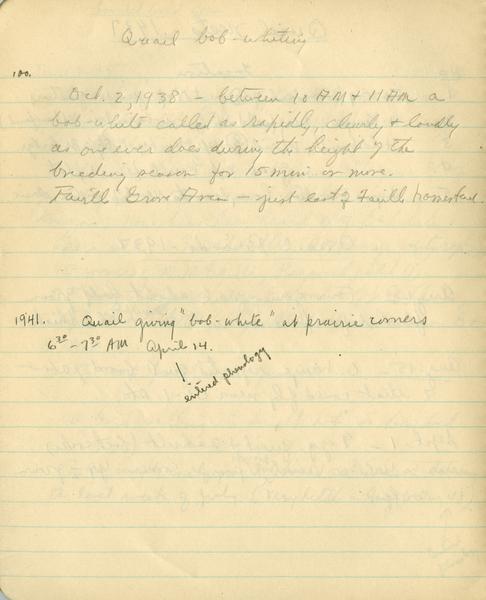 Quail bob-whiting
100.
Oct. 2, 1938 - between 10 AM & 11 AM a
bob-white called as rapidly, clearly & loudly
as one ever does during the height of the
breeding season for 15 min or more.
Faville Grove Area - just east of Faville homestead.
1941. Quail giving "bob-white" at prairie corners
6³⁰ - 7³⁰ AM April 14.
entered phenology